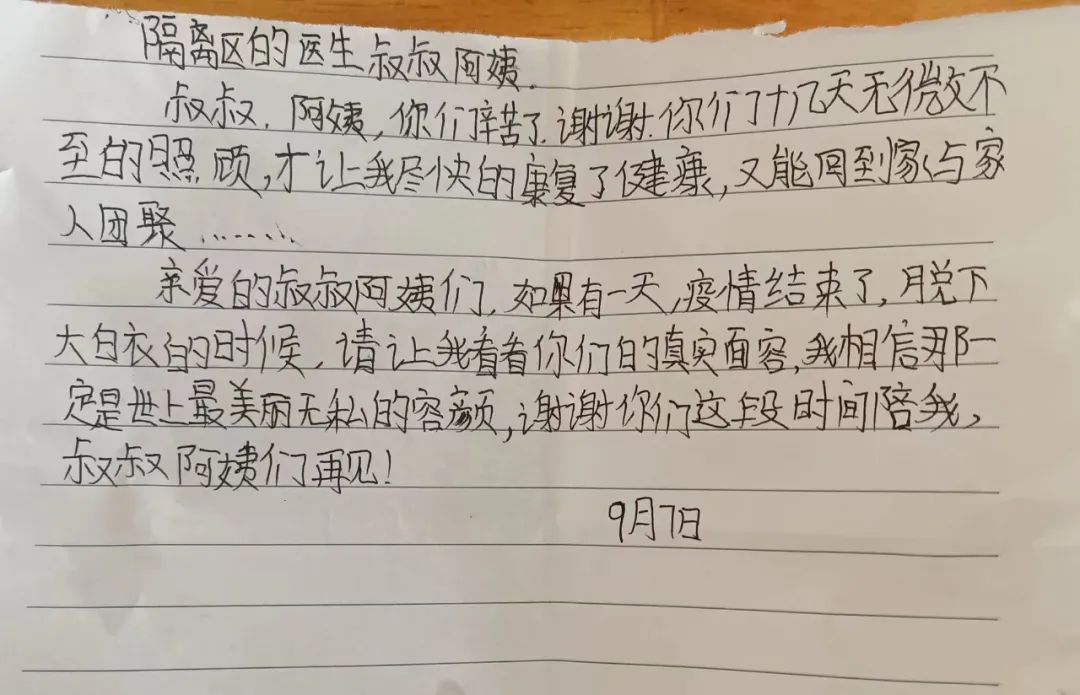 隔离区的医生叔叔阿姨.
叔叔.阿姨,你们辛苦了.谢谢.你们十几天无微不
至的照顾,才让我尽快的康复了健康,又能回到家与家
人团聚.........
亲爱的叔叔阿姨们.如果有一天,疫情结束了,脱下
大白衣的时候.请让我看看你们的真实面容,我相信那一
定是世上最美丽无私的容颜,谢谢你们这段时间陪我,
叔叔阿姨们再见!
9月7日